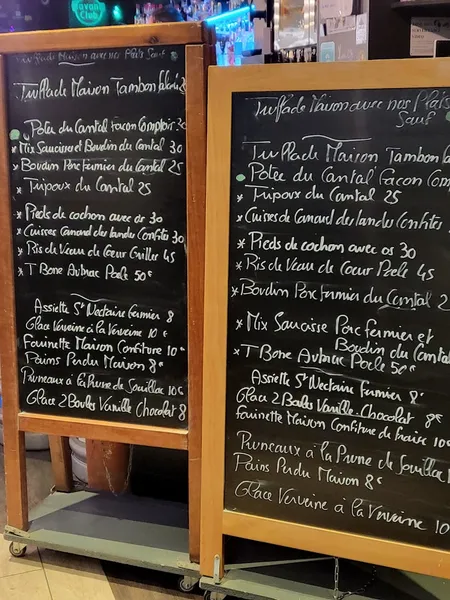 Havana
Club
Truffade Maison avec nos Plats Sauf
Truffade Maison Jambon
Potée du Cantal Façon Comptoir 30
* Mix Saucisse et Boudin du Cantal 30
* Boudin Porc Fermier du Cantal 25
* Tripoux du Cantal 25
* Pieds de cochon avec os 30
* Cuisses Canard des Landes Confites 30
* Ris de Veau de Cœur Griller 45
* T Bone Aubrac Poele 50€
Assiette St Nectaire fermier 8
Glace Verveine à la Verveine 10€
Farinette Maison Confiture 10€
Pains Perdu Maison 8€
Pruneaux à la Prune de Souillac 10€
Glace 2 Boules Vanille Chocolat 8
Truffade Maison avec nos Plats
Sauf
Truffade Maison Jambon
Potée du Cantal Façon Com
* Tripoux du Cantal 25
* Cuisses de Canard des Landes Confites
* Pieds de cochon avec os 30
* Ris de Veau de Cœur Poele 45
* Boudin Porc Fermier du Cantal 2
* Mix Saucisse Porc Fermier et
Boudin du Cantal
* T Bone Aubrac Poele 50€
Assiette St Nectaire fermier 8€
Glace 2 Boules Vanille Chocolat 8€
Farinette Maison Confiture de fraise 10€
Pruneaux à la Prune de Souillac
Pains Perdu Maison 8€
Glace Verveine à la Verveine 10